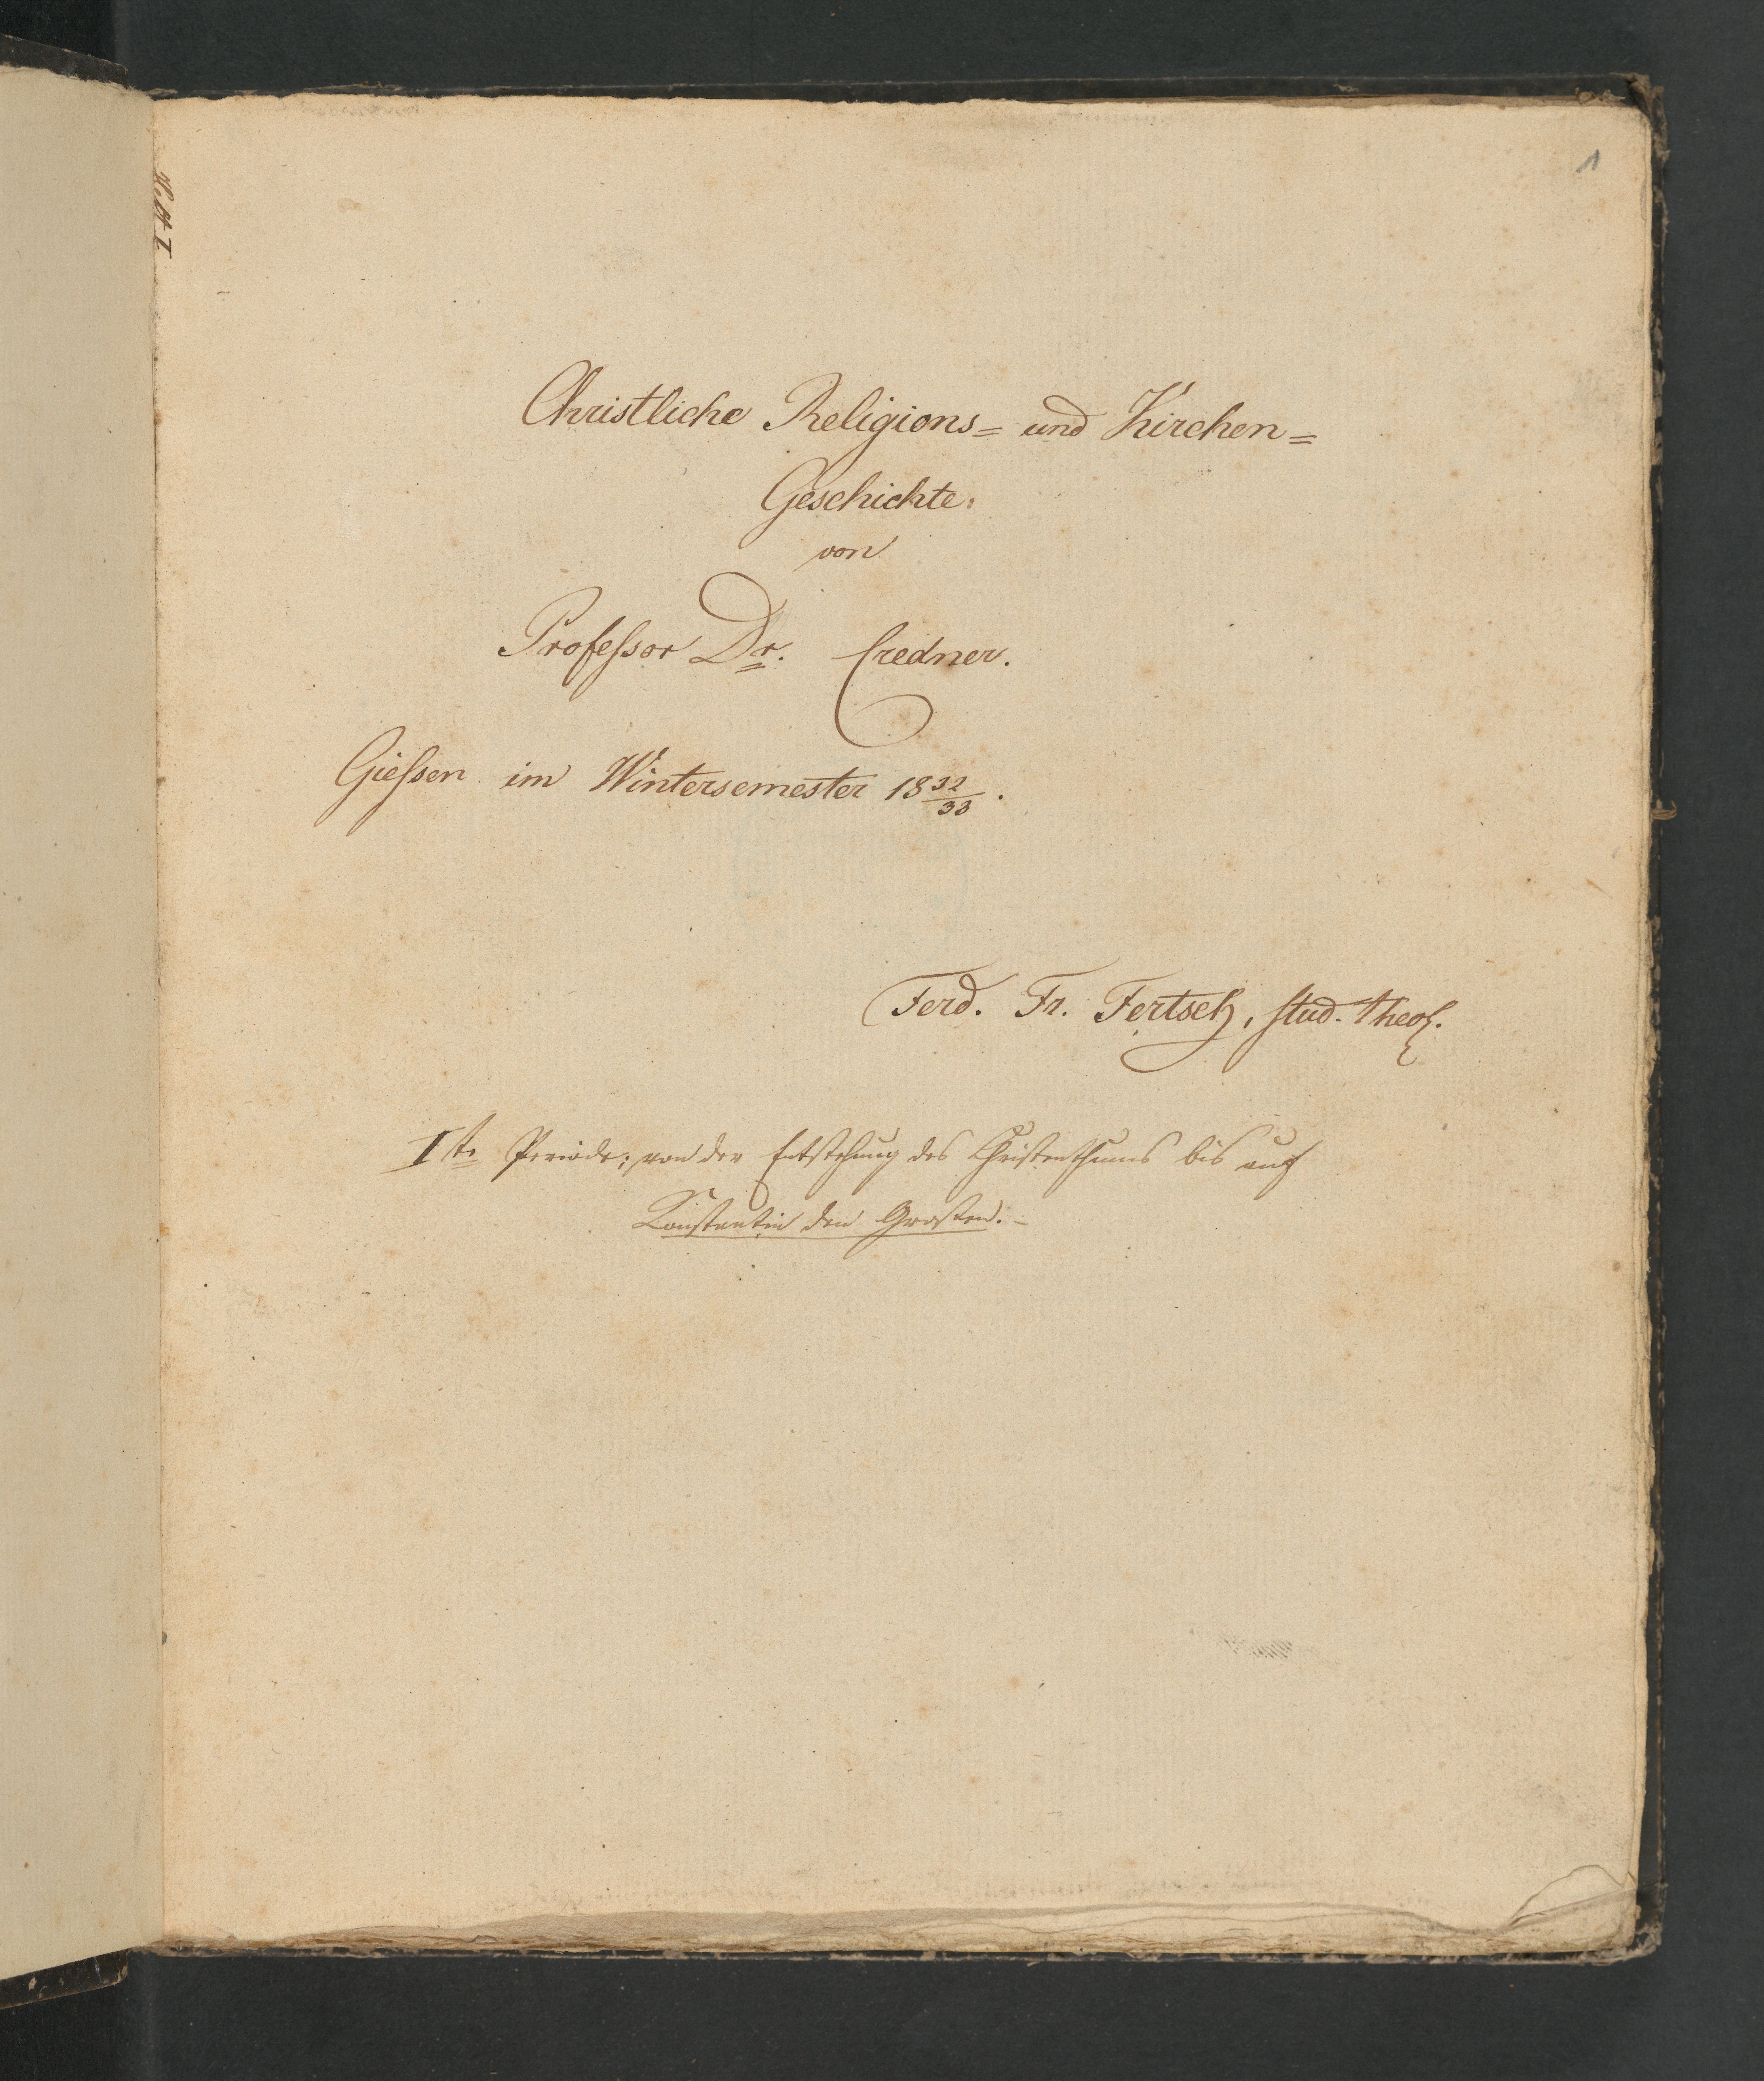 1
Christliche Religions= und Kirchen=
Geschichte.
von
Professor Dr. Credner.
Giessen im Wintersemester 18 32/33.
Ferd. Fr. Fertsch, stud. theol.
Iste Periode; von der Entstehung des Christenthums bis auf
Constantin den Großen.-